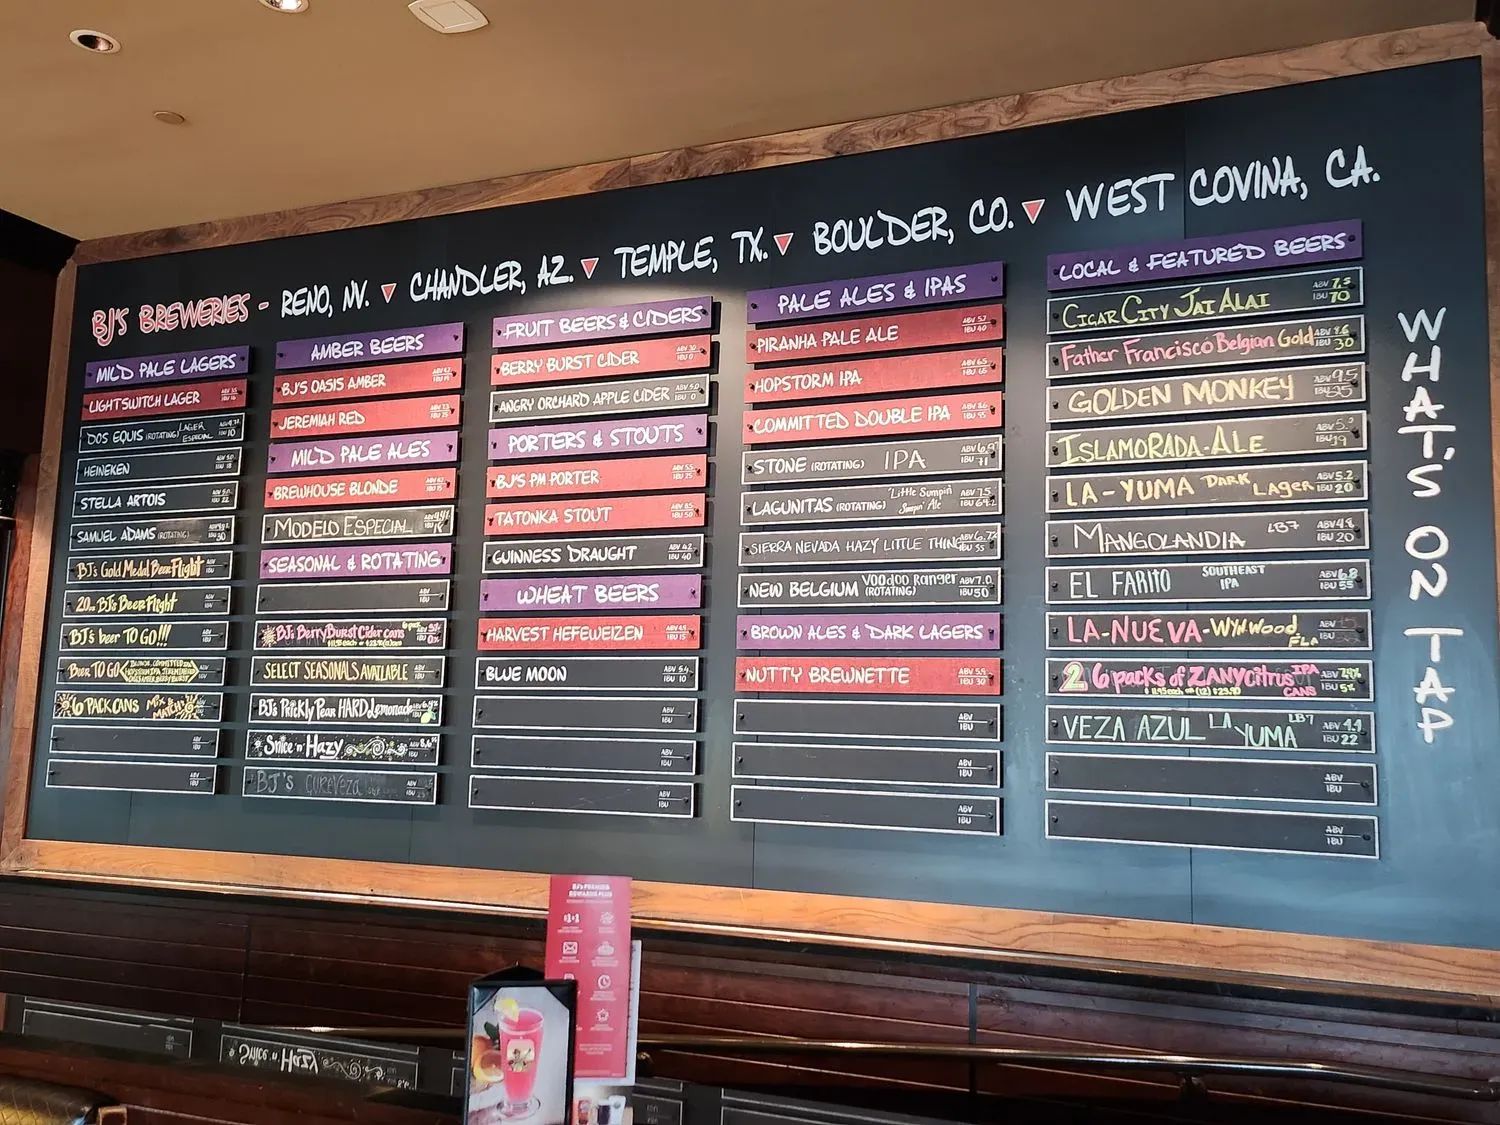 BJ'S BREWERIES - RENO, NV. ▼ CHANDLER, AZ. ▼ TEMPLE, TX. ▼ BOULDER, CO. ▼ WEST COVINA, CA.
WHAT'S ON TAP
MILD PALE LAGERS
LIGHTSWITCH LAGER ABV IBU
DOS EQUIS (ROTATING) LAGER ESPECIAL IBU 10
HEINEKEN ABV 5.0 IBU 18
STELLA ARTOIS ABV 5.0 IBU 22
SAMUEL ADAMS (ROTATING) IBU 30
BJ's Gold Medal Beer Flight
20oz BJ's Beer Flight
BJ's beer TO GO!!!
BEER TO GO
6 PACK CANS MIX MATCH!
ABV IBU
ABV IBU
AMBER BEERS
BJ'S OASIS AMBER ABV IBU
JEREMIAH RED ABV 7.3 IBU 25
MILD PALE ALES
BREWHOUSE BLONDE ABV IBU 15
MODELO ESPECIAL ABV IBU
SEASONAL & ROTATING
ABV IBU
BJ's BerryBurst Cider cans 6 pac
SELECT SEASONALS AVAILABLE ABV IBU
BJ's Prickly Pear HARD Lemonade
Snice 'n' Hazy ABV IBU
BJ'S CURVEZA
FRUIT BEERS & CIDERS
BERRY BURST CIDER ABV IBU 0
ANGRY ORCHARD APPLE CIDER ABV 5.0 IBU 0
PORTERS & STOUTS
BJ'S PM PORTER ABV 5.5 IBU 25
TATONKA STOUT ABV 8.5 IBU 50
GUINNESS DRAUGHT ABV 4.2 IBU 40
WHEAT BEERS
HARVEST HEFEWEIZEN ABV 4.9 IBU 15
BLUE MOON ABV 5.4 IBU 10
ABV IBU
ABV IBU
ABV IBU
PALE ALES & IPAS
PIRANHA PALE ALE ABV 5.7 IBU 40
HOPSTORM IPA ABV 6.5 IBU 65
COMMITTED DOUBLE IPA ABV 8.6 IBU
STONE (ROTATING) IPA ABV 6.9 IBU 71
LAGUNITAS (ROTATING) 'Little Sumpin' Sumpin' Ale ABV 7.5 IBU 64.2
SIERRA NEVADA HAZY LITTLE THING ABV 6.7 IBU 35
NEW BELGIUM (ROTATING) Voodoo Ranger ABV 7.0 IBU 50
BROWN ALES & DARK LAGERS
NUTTY BREWNETTE ABV 5.9 IBU 30
ABV IBU
ABV IBU
ABV IBU
LOCAL & FEATURED BEERS
CIGAR CITY JAI ALAI ABV 7.5 IBU 70
Father Francisco Belgian Gold ABV 9.6 IBU 30
GOLDEN MONKEY ABV 9.5 IBU 25
ISLAMORADA-ALE ABV IBU 19
LA-YUMA DARK LAGER ABV 5.2 IBU 20
MANGOLANDIA LB7 ABV 4.8 IBU 20
EL FARITO SOUTHEAST IPA ABV 6.8 IBU 55
LA-NUEVA-WYNWOOD FLA
2 6 packs of ZANYcitrus IPA CANS ABV IBU
VEZA AZUL LA YUMA LB7 ABV 4.9 IBU 22
ABV IBU
ABV IBU
BJ's PREMIER REWARDS PLUS